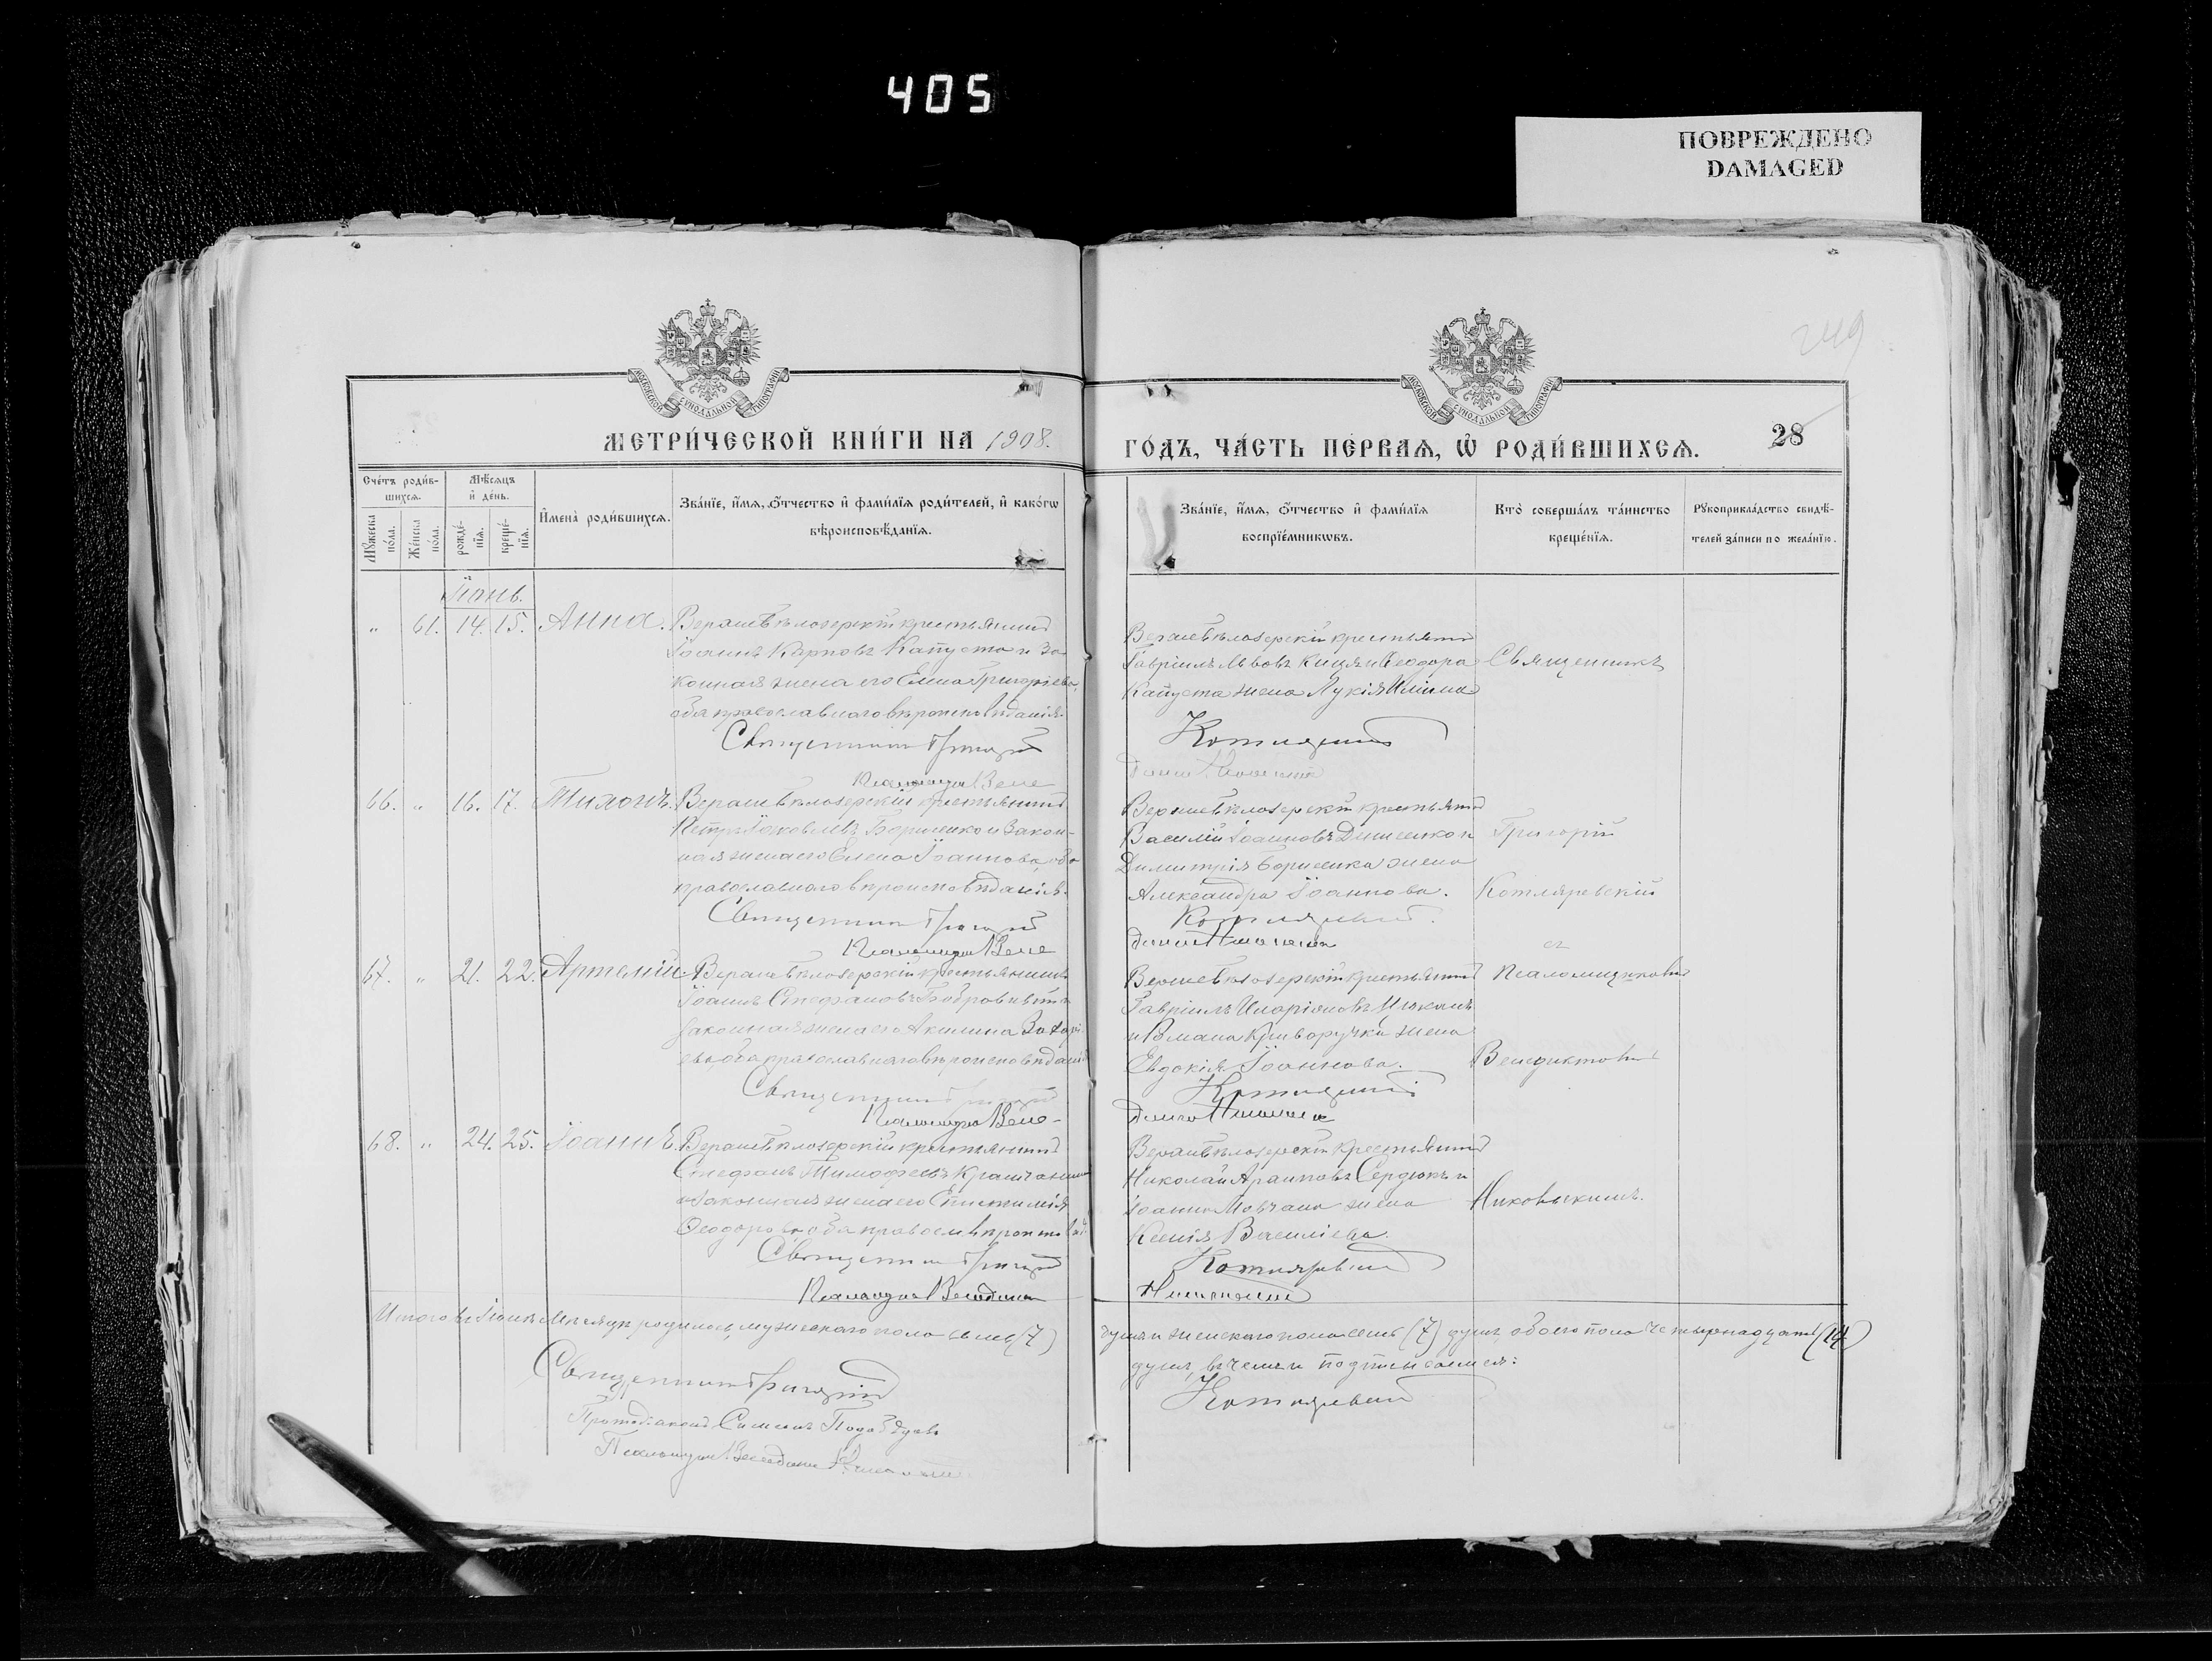 405
ПОВРЕЖДЕНО
DAMAGED
249
МОСКОВСКОЙ СѴНОДАЛЬНОЙ ТИПОГРАФІИ
МОСКОВСКОЙ СѴНОДАЛЬНОЙ ТИПОГРАФІИ
МЕТРИ́ЧЕСКОЙ КНИ́ГИ НА 1908.
ГО́ДЪ, ЧА́СТЬ ПЕ́РВАѦ, Ѡ҆ РОДИ́ВШИХСѦ.
28
Сче́тъ роди́в-
шихсѧ.
Му́жеска по́ла.
Же́нска по́ла.
Мѣ́сѧцъ
и҆ де́нь.
рожде́-
нїѧ.
креще́-
нїѧ.
И҆мена̀ роди́вшихсѧ.
Зва́нїе, и҆́мѧ, ѻ҆́тчество и҆ фами́лїѧ роди́телей, и҆ како́гѡ
вѣроисповѣ́данїѧ.
Зва́нїе, и҆́мѧ, ѻ҆́тчество и҆ фами́лїѧ
воспрїе́мникѡвъ.
Кто̀ соверша́лъ та́инство
креще́нїѧ.
Рꙋкоприкла́дство свидѣ́-
телей за́писи по жела́нїю.
Іюнь.
„ 61. 14. 15. Анна. Верхнебѣлозерскій крестьянинъ
Іоаннъ Карповъ Капуста и за-
конная жена его Елена Григоріева,
оба православнаго вѣроисповѣданія.
Священникъ Григорій
Псаломщикъ Вене
Верхнебѣлозерскій крестьянинъ
Гавріилъ Львовъ Куця и Ѳеодора
Капуста жена Лукія
Котляревскій
Священникъ
66. „ 16. 17. Тихонъ. Верхнебѣлозерскій крестьянинъ
Петръ Іаковлевъ Борисенко и закон-
ная жена его Елена Іоаннова, оба
православнаго вѣроисповѣданія.
Священникъ Григорій
Псаломщикъ Вене
Верхнебѣлозерскій крестьянинъ
Василій Іоанновъ Денисенко и
Димитрія Борисенка жена
Александра Іоаннова.
Котляревскій
Григорій
Котляревскій
съ
67. „ 21. 22. Артемій. Верхнебѣлозерскій крестьянинъ
Іоаннъ Стефановъ и
законная жена его Акилина Захарі-
ева, оба православнаго вѣроисповѣданія
Священникъ Григорій
Псаломщикъ Вене-
Верхнебѣлозерскій крестьянинъ
Гавріилъ Иларіоновъ
и Романа Криворучки жена
Евдокія Іоаннова.
Котляревскій
Псаломщикомъ
Венедиктомъ
68. „ 24. 25. Іоаннъ. Верхнебѣлозерскій крестьянинъ
Стефанъ Тимофеевъ
и законная жена его Епистимія
Ѳеодорова, оба правосл. вѣроисповѣд.
Священникъ Григорій
Псаломщикъ Венедиктъ
Верхнебѣлозерскій крестьянинъ
Николай Сердюкъ и
Іоанна Мовчана жена
Ксенія Василіева.
Котляревскій
Итого въ Іюнѣ мѣсяцѣ родилось мужескаго пола семь (7)
душъ и женскаго пола семь (7) душъ обоего пола четырнадцать (14)
душъ, въ чемъ и подписуемся:
Священникъ Григорій
Котляревскій
Протодіаконъ Симеонъ
Псаломщикъ Венедиктъ